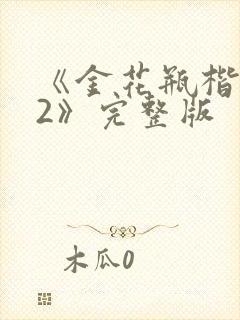 《金花瓶楷
2》完整版
木瓜0